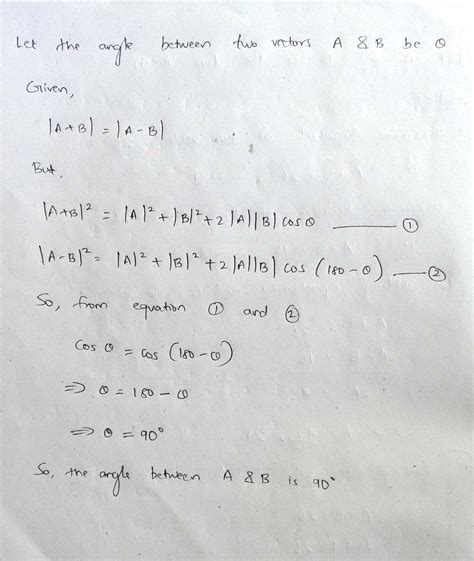 Let the angle between two vectors A & B be θ
Given,
|A+B| = |A-B|
But,
|A+B|² = |A|² + |B|² + 2 |A||B| cos θ ——— ①
|A-B|² = |A|² + |B|² + 2 |A||B| cos (180 - θ) —— ②
So, from equation ① and ②
cos θ = cos (180 - θ)
⇒ θ = 180 - θ
⇒ θ = 90°
So, the angle between A & B is 90°